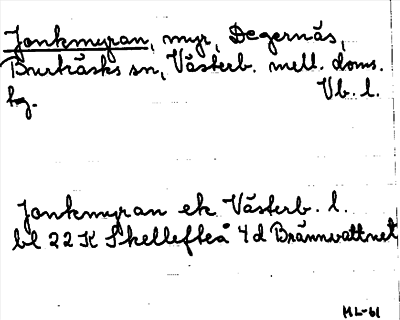 Jonkmyran, myr, Degernäs,
Burträsks sn, Västerb. mell. doms.
hg. Vb. l.
Jonkmyran ek Västerb. l.
bl 22 K Skellefteå 4d Brännvattnet
ML-61